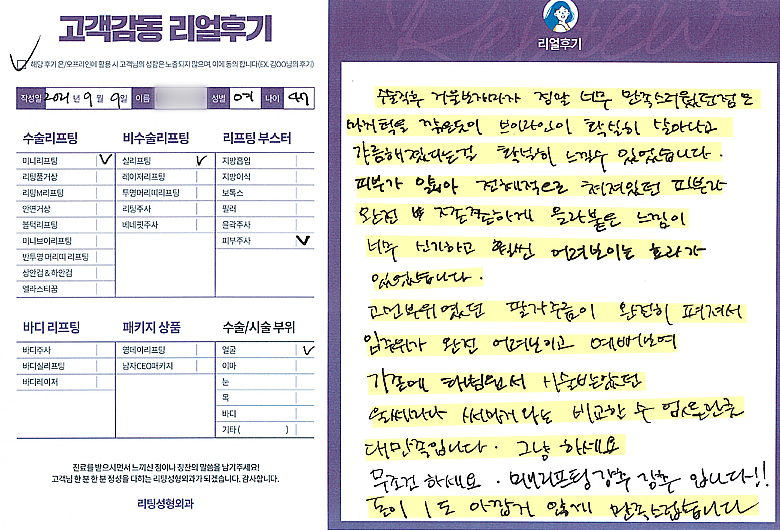 고객감동 리얼후기
해당 후기 온/오프라인에 활용 시 고객님의 성함은 노출되지 않으며, 이에 동의 합니다(EX. 김OO님의 후기)
작성일 2021년 9월 9일 이름 성별 여 나이 47
수술리프팅
미니리프팅
리팅풀거상
리팅M리프팅
안면거상
볼턱리프팅
미니브이리프팅
반투명 머리띠 리프팅
상안검 & 하안검
엘라스티꿈
비수술리프팅
실리프팅
레이저리프팅
투명머리띠리프팅
리팅주사
비네핏주사
리프팅 부스터
지방흡입
지방이식
보톡스
필러
윤곽주사
피부주사
바디 리프팅
바디주사
바디실리프팅
바디레이저
패키지 상품
영데이리프팅
남자CEO패키지
수술/시술 부위
얼굴
이마
눈
목
바디
기타 ( )
진료를 받으시면서 느끼신 점이나 칭찬의 말씀을 남기주세요!
고객님 한 분 한 분 정성을 다하는 리팅성형외과가 되겠습니다. 감사합니다.
리팅성형외과
리얼후기
수술직후 거울보자마자 정말 너무 만족스러웠던점으
마치 턱을 깎은듯이 브이라인이 확실히 살아나고
갸름해졌다는걸 확실히 느낄수 있었습니다.
피부가 얇아 전체적으로 처져있던 피부가
완전 쫀쫀하게 올라붙은 느낌이
너무 신기하고 훨씬 어려보이는 효과가
있었습니다.
고민부위였던 팔자주름이 완전히 펴져서
입주위가 완전 어려보이고 예뻐보여
기존에 타병원서 시술받았던
울쎄라나 써마지와는 비교할 수 없을만큼
대만족입니다. 그냥 하세요
무조건 하세요. 미니리프팅 강추 강추 입니다!!
돈이 1도 아깝거 않게 만족스럽습니다